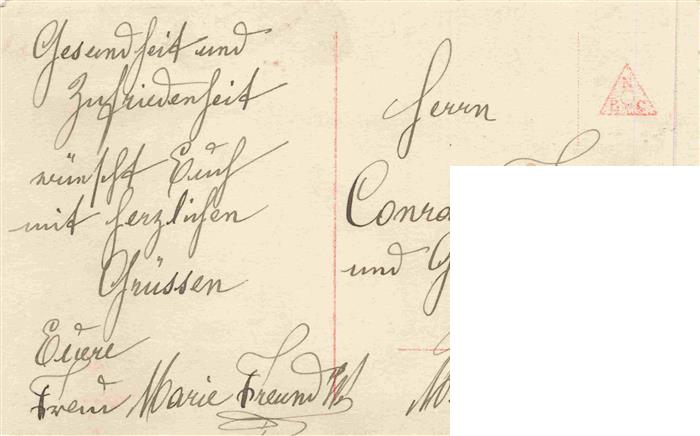 Gesundheit und
Zufriedenheit
wünscht Euch
mit herzlichen
Grüssen
Euere
Marie Freund
Herrn
und
N
B C